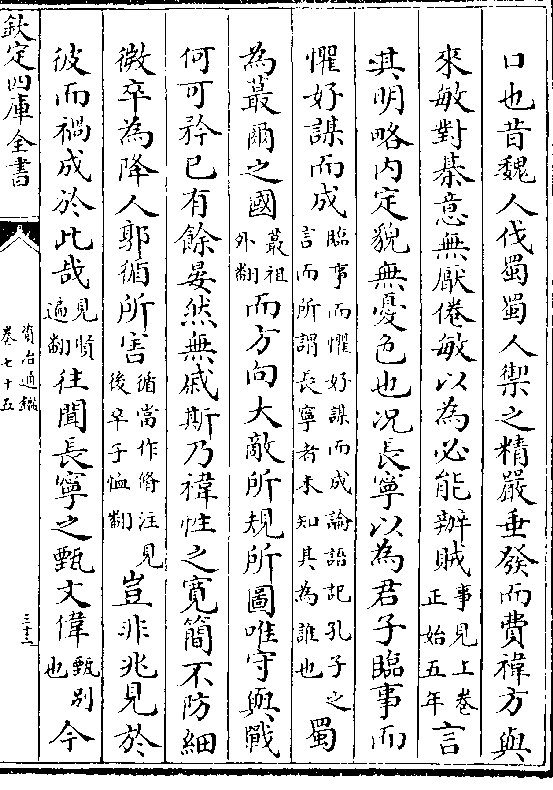 口也昔魏人伐蜀蜀人禦之精嚴垂發而費禕方與
來敏對棊意無厭倦敏以為必能辦賊事見上卷正始五年言
其明略内定貌無憂色也况長寧以為君子臨事而
懼好謀而成臨事而懼好謀而成論語記孔子之言而所謂長寧者未知其為誰也蜀
為蕞爾之國蕞祖外翻而方向大敵所規所圖唯守與戰
何可矜已有餘晏然無戚斯乃禕性之寛簡不防細
微卒為降人郭循所害循當作脩注見後卒子恤翻豈非兆見於
彼而禍成於此哉見賢遍翻往聞長寧之甄文偉甄别也今
欽定四庫全書
資治通鑑
卷七十五
三十三